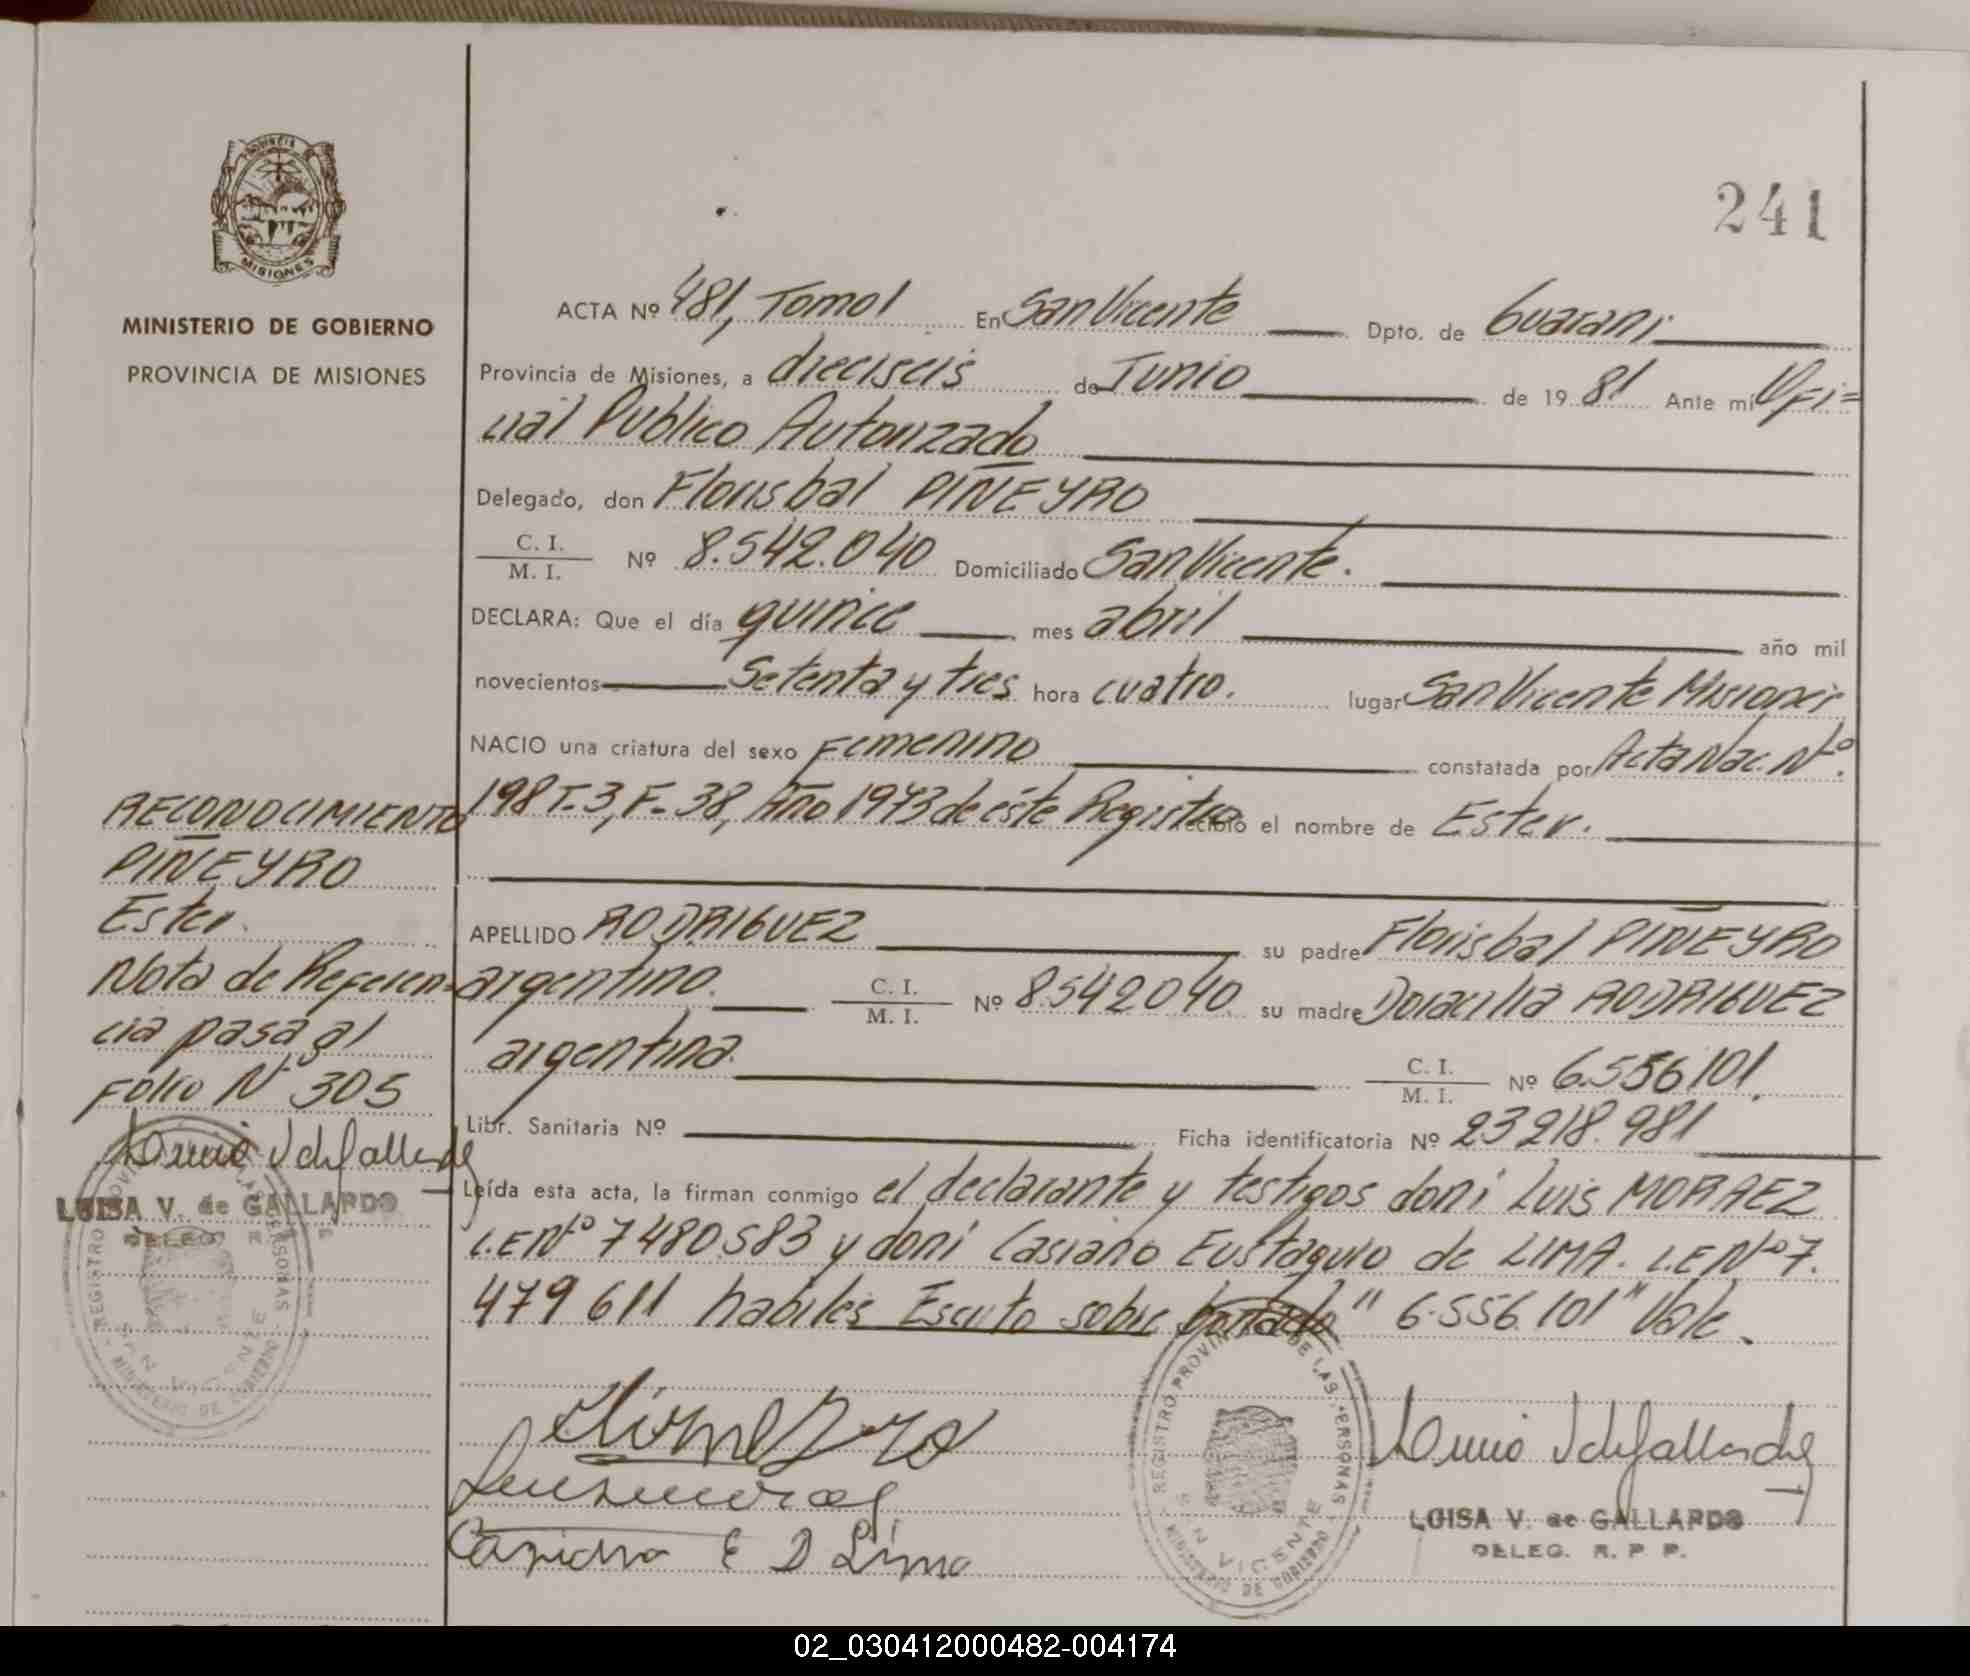 241
PROVINCIA DE
MISIONES
MINISTERIO DE GOBIERNO
PROVINCIA DE MISIONES
ACTA Nº 481, Tomo 1 En San Vicente Dpto. de Guarani
Provincia de Misiones, a dieciseis de Junio de 19 81 Ante mi Ofi=
cial Publico Autorizado
Delegado, don Florisbal PIÑEYRO
C. I.
M. I. Nº 8.542.040 Domiciliado San Vicente.
DECLARA: Que el día quince mes abril año mil
novecientos Setenta y tres hora cuatro. lugar San Vicente Misiones
NACIO una criatura del sexo Femenino constatada por Acta Nac. Nº.
198 T. 3, F. 38, Año 1973 de éste Registro recibió el nombre de Ester.
RECONOCIMIENTO
PIÑEYRO
Ester.
Nota de Referen=
cia pasa al
Folio Nº 305
LUISA V. de GALLARDO
DELEG. R. P. P.
REGISTRO PROVINCIAL DE LAS PERSONAS
SAN VICENTE
MINISTERIO DE GOBIERNO
APELLIDO RODRIGUEZ su padre Florisbal PIÑEYRO
argentino. C. I.
M. I. Nº 8.542040 su madre Doracilia RODRIGUEZ
argentina. C. I.
M. I. Nº 6.556101.
Libr. Sanitaria Nº Ficha identificatoria Nº 23218.981
Leída esta acta, la firman conmigo el declarante y testigos don: Luis MORAEZ
L.E Nº 7480583 y don: Casiano Eustaquio de LIMA. L.E Nº 7.
479 611 habiles Escrito sobre borrado " 6.556.101" Vale.
Casiano E D Lima
REGISTRO PROVINCIAL DE LAS PERSONAS
SAN VICENTE
MINISTERIO DE GOBIERNO
LUISA V. de GALLARDO
DELEG. R. P. P.
02_030412000482-004174